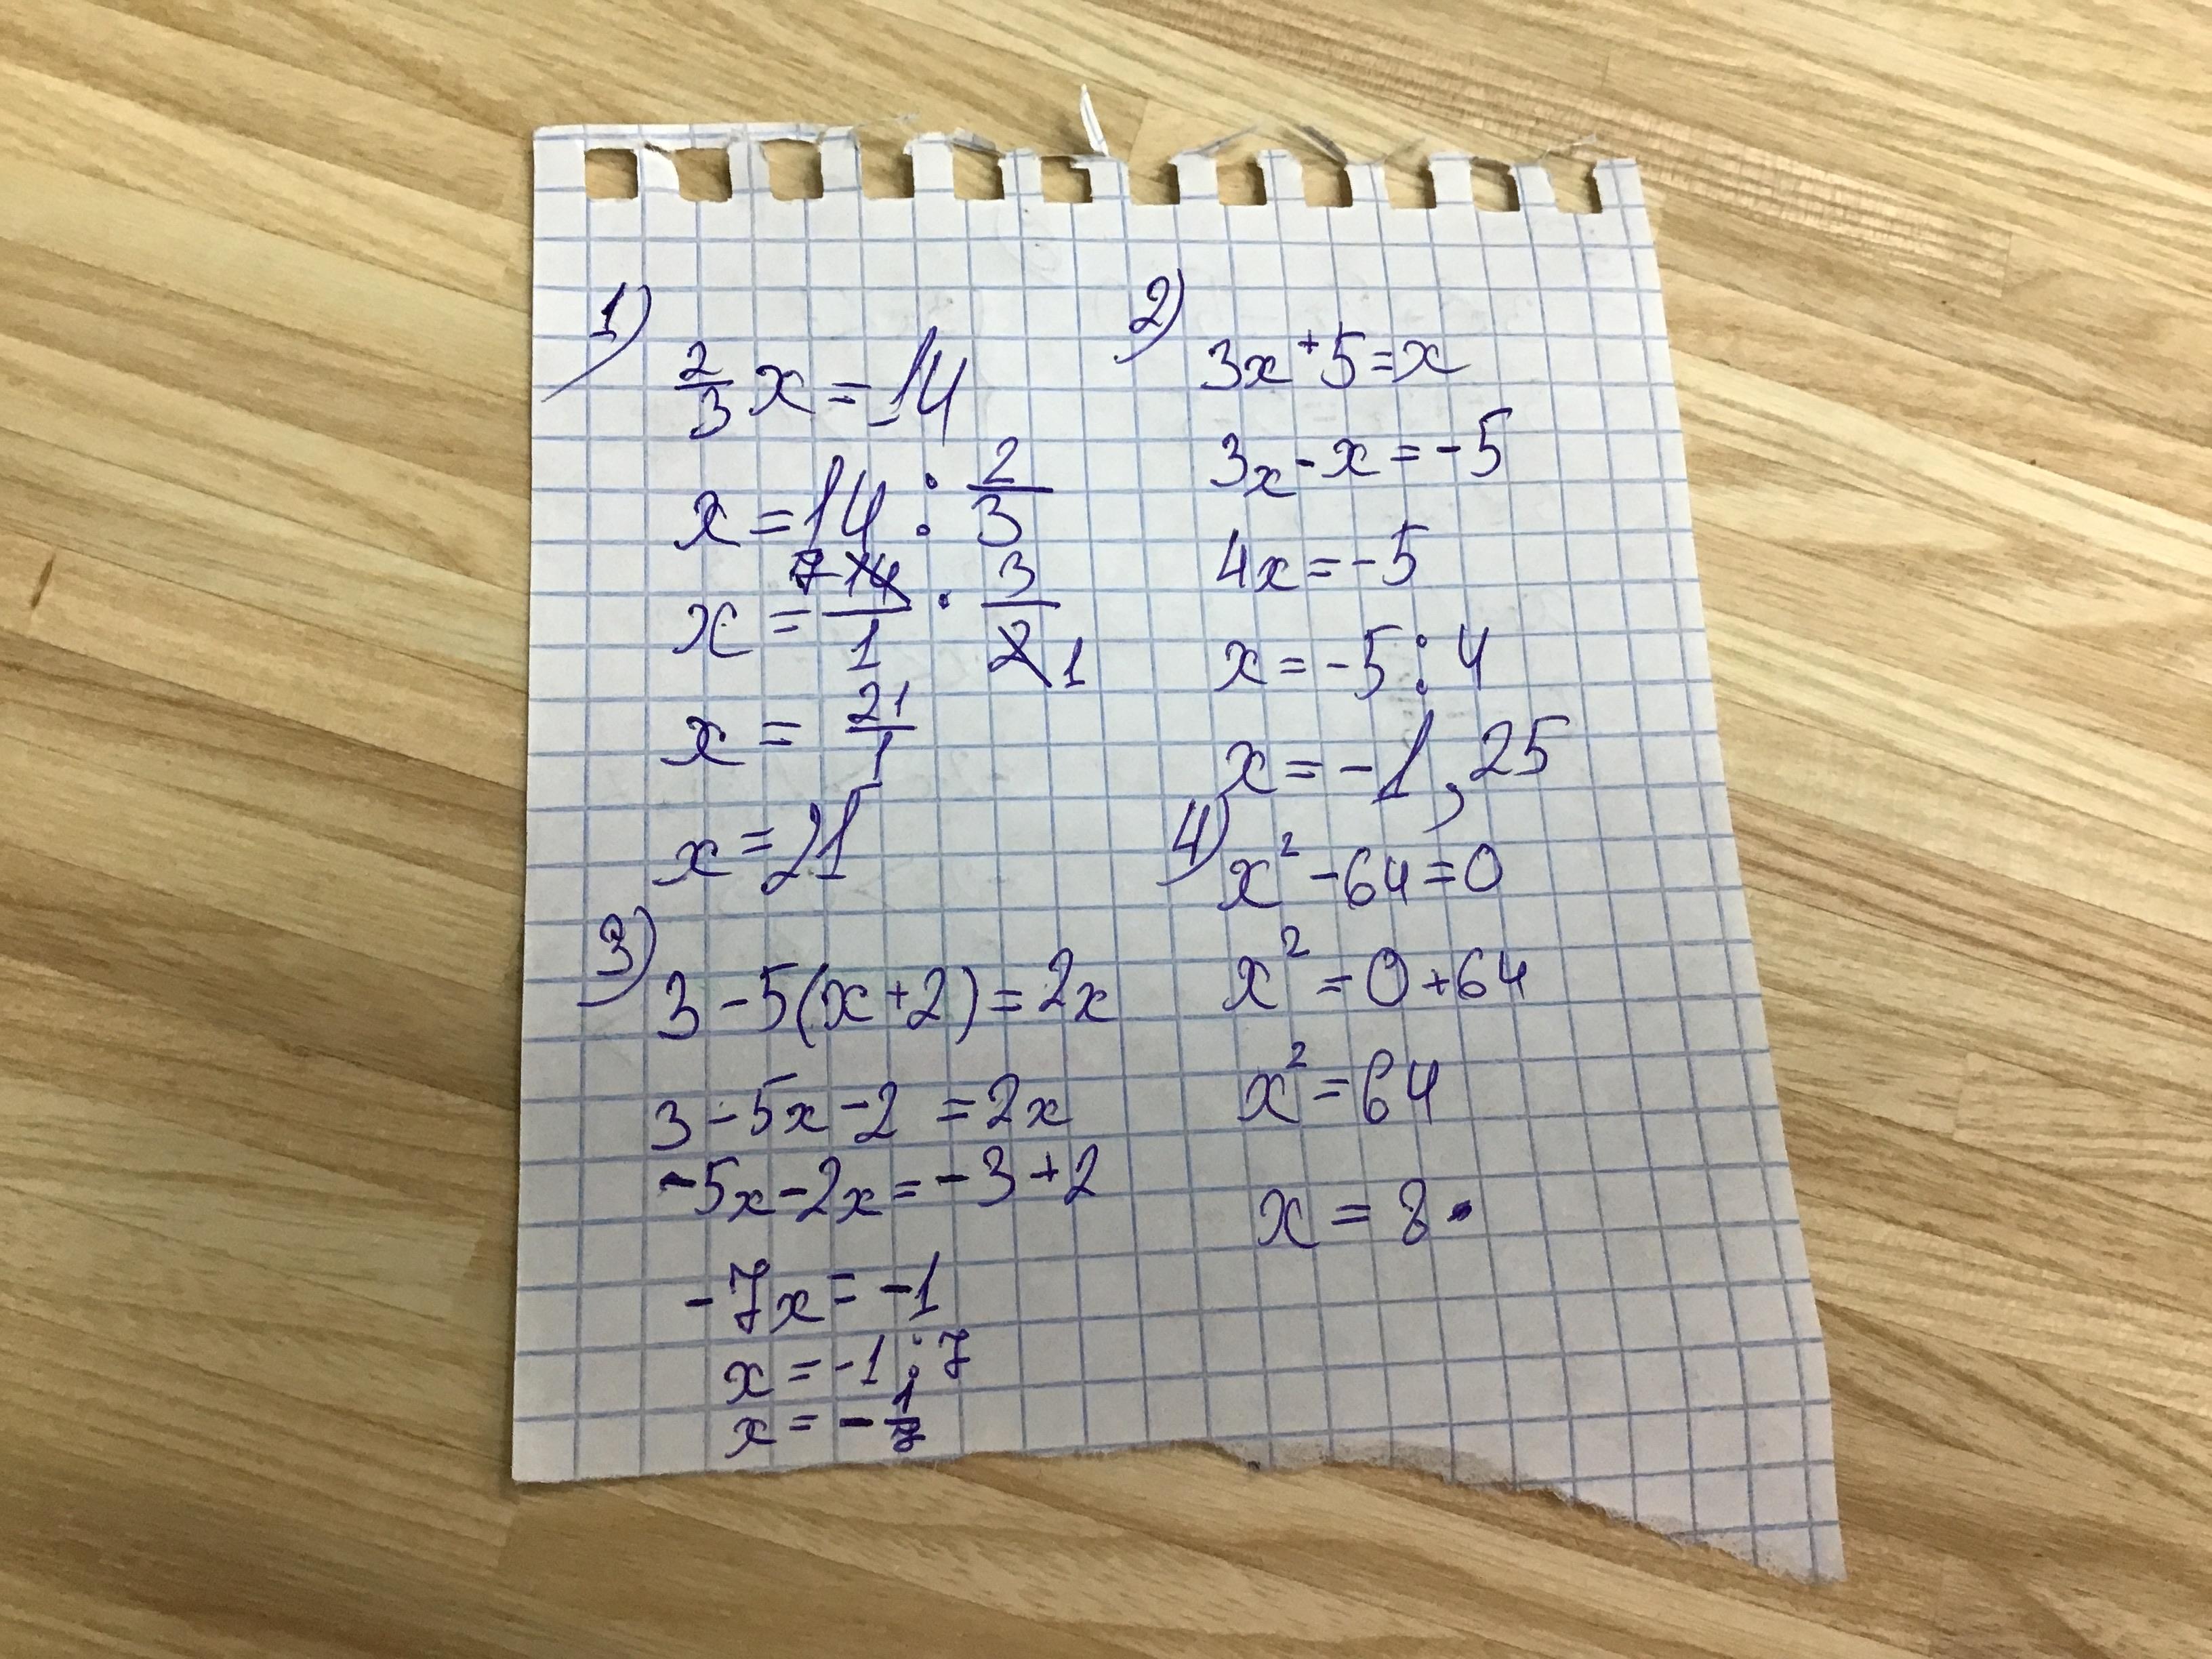 1)
2/3 x = 14
x = 14 : 2/3
x = 7 14/1 · 3/2 1
x = 21/1
x = 21
2)
3x + 5 = x
3x - x = -5
4x = -5
x = -5 : 4
x = -1,25
3)
3 - 5(x + 2) = 2x
3 - 5x - 2 = 2x
-5x - 2x = -3 + 2
-7x = -1
x = -1 : 7
x = - 1/7
4)
x² - 64 = 0
x² = 0 + 64
x² = 64
x = 8.